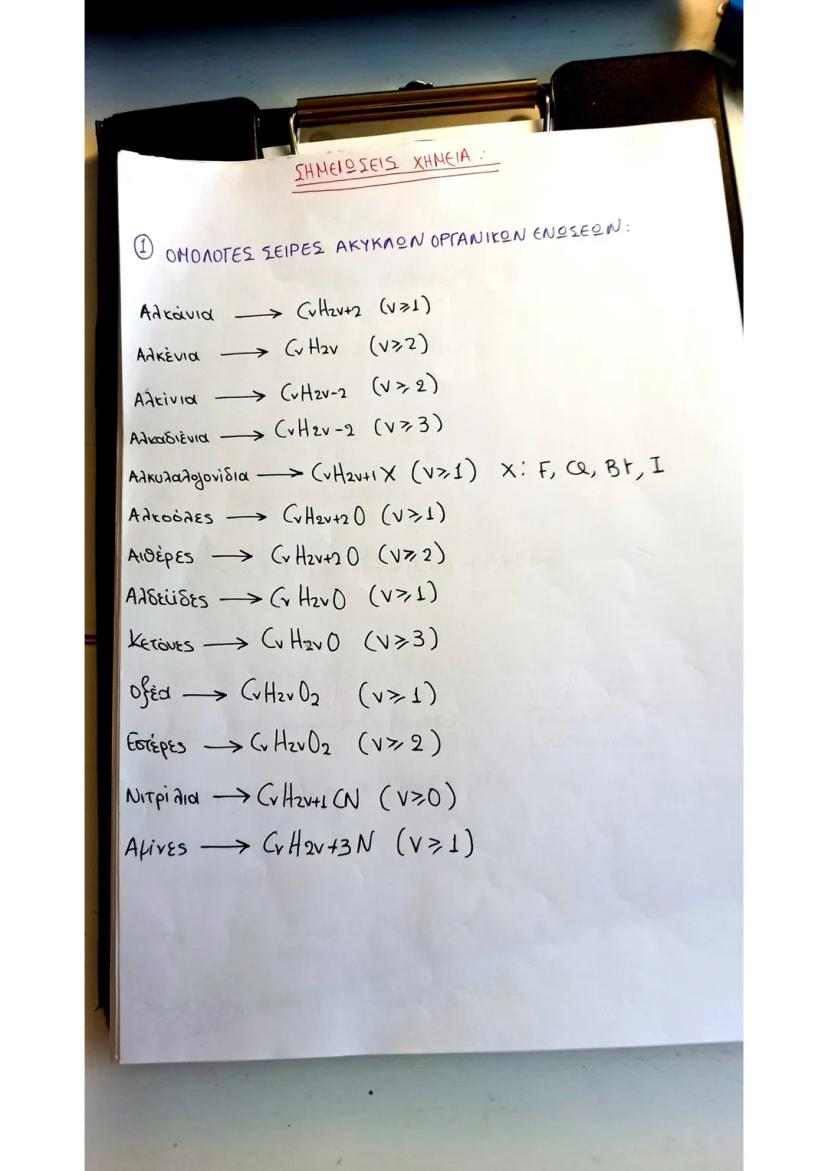 ΣΗΜΕΙΩΣΕΙΣ ΧΗΜΕΙΑ :
① ΟΜΟΛΟΓΕΣ ΣΕΙΡΕΣ ΑΚΥΚΛΩΝ ΟΡΓΑΝΙΚΩΝ ΕΝΩΣΕΩΝ :
Αλκάνια → CνH2ν+2 (ν≥1)
Αλκένια → CνH2ν (ν≥2)
Αλκίνια → CνH2ν-2 (ν≥2)
Αλκαδιένια → CνH2ν-2 (ν≥3)
Αλκυλαλογονίδια → CνH2ν+1X (ν≥1) X: F, Cl, Br, I
Αλκοόλες → CνH2ν+2O (ν≥1)
Αιθέρες → CνH2ν+2O (ν≥2)
Αλδεΰδες → CνH2νO (ν≥1)
Κετόνες → CνH2νO (ν≥3)
Οξέα → CνH2νO2 (ν≥1)
Εστέρες → CνH2νO2 (ν≥2)
Νιτρίλια → CνH2ν+1CN (ν≥0)
Αμίνες → CνH2ν+3N (ν≥1)